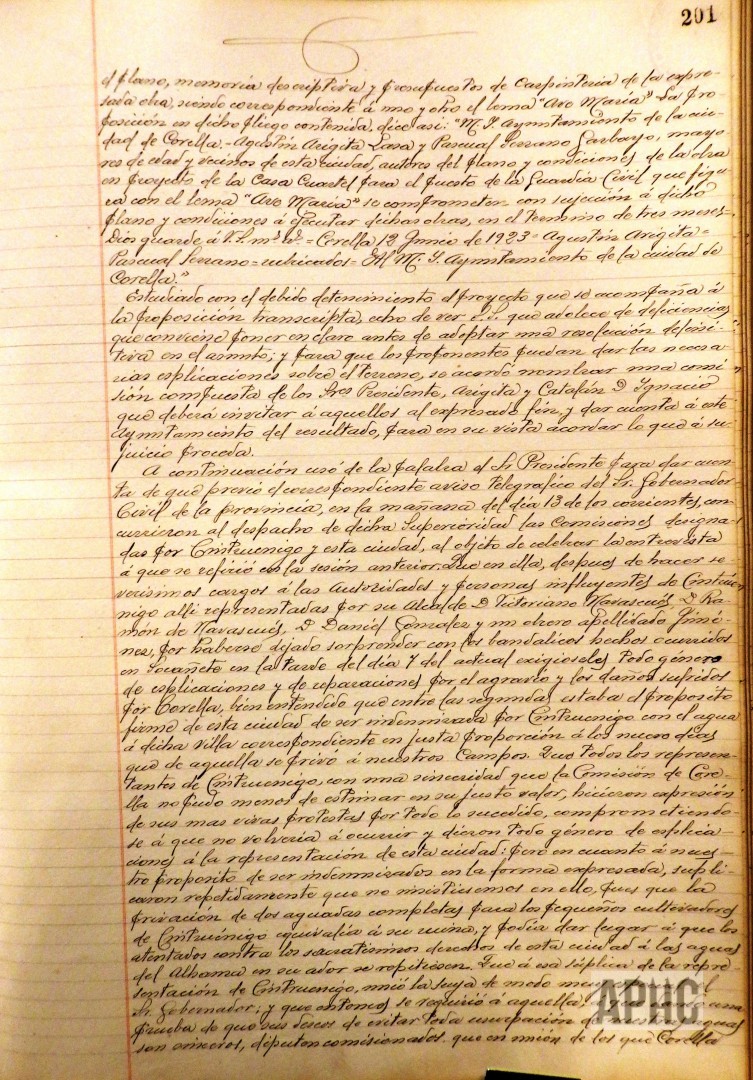 201
el plano, memoria descriptiva y presupuestos de Carpinteria de la expre-
sada obra, siendo correspondiente á uno y otro el lema "Ave Maria" La pro-
posición en dicho pliego contenida, dice asi: "M. I. Ayuntamiento de la ciu-
dad de Corella.- Agustin Arigita Lasa y Pascual Serrano Garbayo, mayo
res de edad y vecinos de esta ciudad, autores del plano y condiciones de la obra
en proyecto de la Casa Cuartel para el puesto de la Guardia Civil que figu
ra con el lema "Ave Maria" se comprometen con sujeción á dicho
plano y condiciones á ejecutar dichas obras, en el termino de tres meses-
Dios guarde á V.S. ms. as.= Corella 12 Junio de 1923= Agustin Arigita=
Pascual Serrano= rubricados= Al M. I. Ayuntamiento de la ciudad de
Corella."
Estudiado con el debido detenimiento el proyecto que se acompaña á
la proposición transcripta, echo de ver S.S. que adolece de deficiencias
que conviene poner en claro antes de adoptar una resolución defini-
tiva en el asunto; y para que los proponentes puedan dar las necesa
rias esplicaciones sobre el terreno, se acordó nombrar una comi
sión compuesta de los Sres Presidente, Arigita y Catalán D. Ignacio
que deberá invitar á aquellos al expresado fin, y dar cuenta á este
Ayuntamiento del resultado, para en su vista acordar lo que á su
juicio proceda.
A continuación usó de la palabra el Sr Presidente para dar cuen-
ta de que previo el correspondiente aviso telegrafico del Sr. Gobernador
Civil de la provincia, en la mañana del dia 13 de los corrientes, con
currieron al despacho de dicha Superioridad las Comisiones designa-
das por Cintruenigo y esta ciudad, al objeto de celebrar la entrevista
á que se refirió en la sesión anterior: Que en ella, despues de hacer se
verisimos cargos á las Autoridades y personas influyentes de Cintrué
nigo alli representadas por su Alcalde D Victoriano Navascués, D. Ra-
món de Navascués, D. Daniel Gonzalez y un obrero apellidado Jime-
nez, por haberse dejado sorprender con los bandalicos hechos ocurridos
en la tarde del dia 7 del actual exigioseles todo género
de esplicaciones y de reparaciones por el agravio y los daños sufridos
por Corella, bien entendido que entre las segundas estaba el proposito
firme de esta ciudad de ser indemnizada por Cintruenigo con el agua
á dicha villa correspondiente en justa proporción á los nueve dias
que de aquella se privó á nuestros Campos. Que todos los represen-
tantes de Cintruenigo, con una sinceridad que la Comisión de Core-
lla no pudo menos de estimar en su justo valor, hicieron expresión
de sus mas vivas protestas por todo lo sucedido, comprometiendo-
se á que no volveria á ocurrir y dieron todo género de esplica-
ciones á la representación de esta ciudad: pero en cuanto á nues-
tro proposito de ser indemnizados en la forma expresada, supli-
caron repetidamente que no insistiesemos en ello, pues que la
privación de dos aguadas completas para los pequeños cultivadores
de Cintruénigo equivalia á su ruina, y podia dar lugar á que los
atentados contra los sacratisimos derechos de esta ciudad á las aguas
del Alhama en su ador se repitiesen. Que á esa súplica de la repre-
sentación de Cintruenigo, unió la suya de modo
Sr. Gobernador; y que entonces se requirió á aquella
prueba de que sus deseos de evitar toda usurpación de aguas
son sinceros, diputen comisionados que en unión de los que Corella
APHC